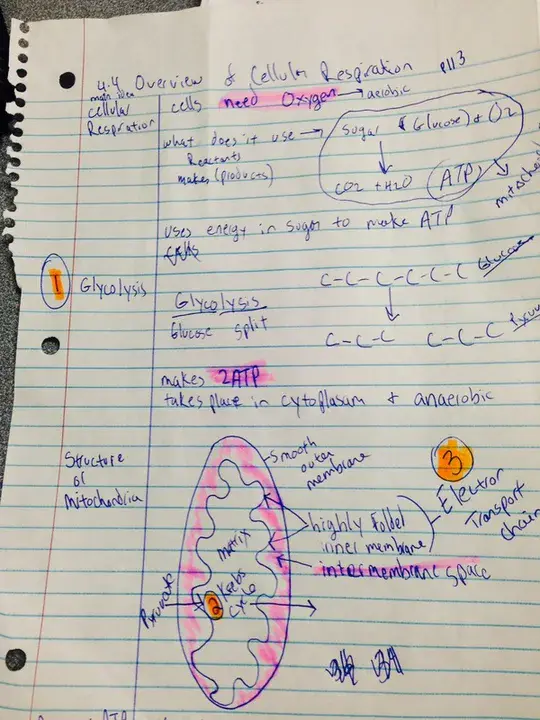 4.4 Overview of Cellular Respiration p113
main idea
cellular
Respiration
cells need Oxygen → aerobic
what does it use → Sugar (Glucose) + O2
Reactants
makes (products)
CO2 + H2O ATP
uses energy in sugar to make ATP
1 Glycolysis
Glycolysis
Glucose split
C-C-C-C-C-C Glucose
C-C-C C-C-C
makes 2ATP
takes place in cytoplasum + anaerobic
Structure
of
Mitochondria
Smooth
outer
membrane
3
Electron
Transport
chain
highly folded
inner membrane
intermembrane space
matrix
Pyruvate
2 Krebs
cycle